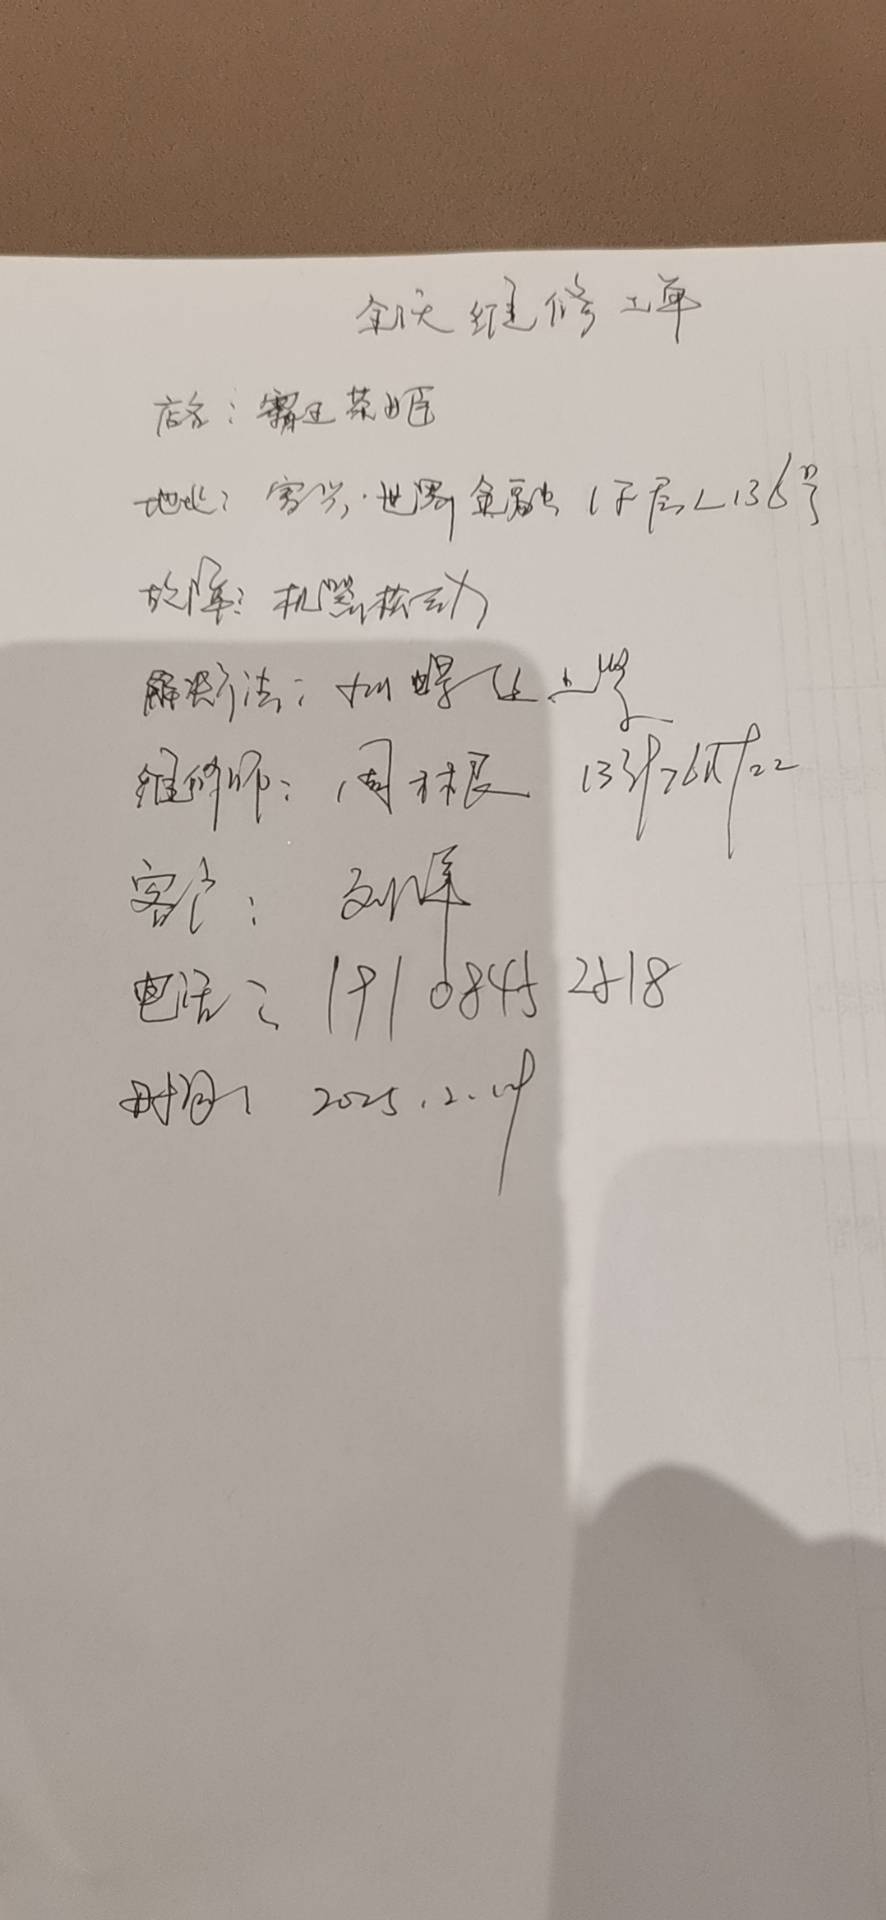 维修工单
店名：霸王茶姬
地址：世界金融1F层L136号
故障：机器松动
解决方法：加螺丝上紧
维修师：周林根
客户：刘军
电话：191 0845 2818
时间：2025.2.19